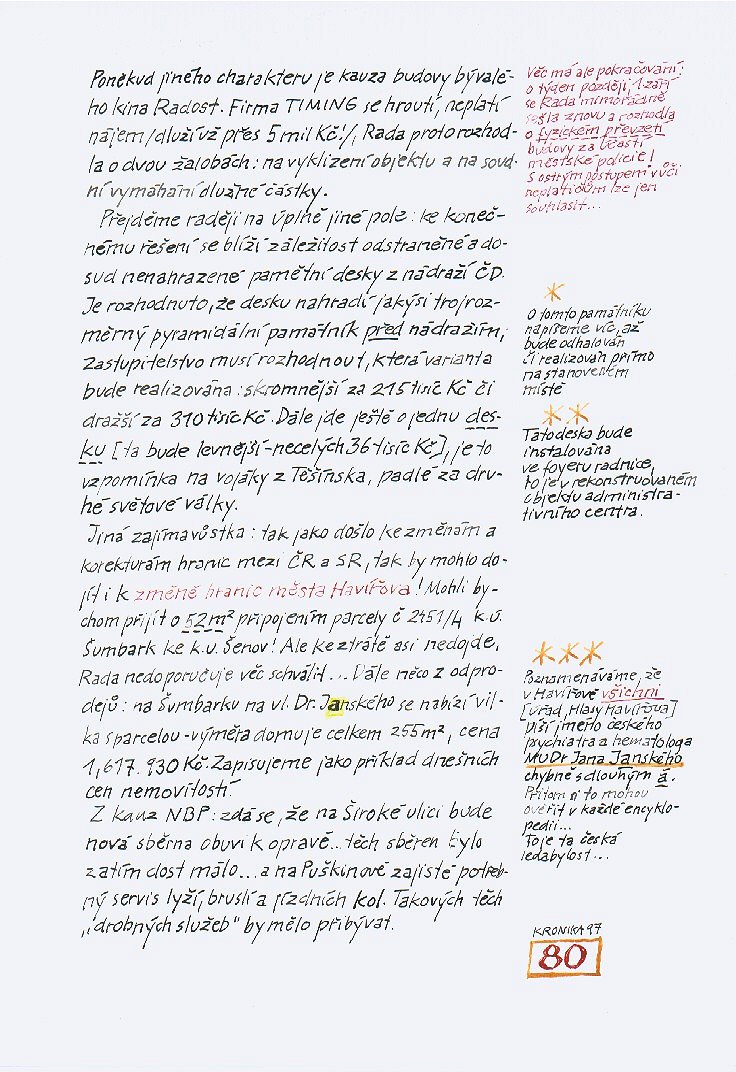 Poněkud jiného charakteru je kauza budovy bývalé-
ho kina Radost. Firma TIMING se hroutí, neplatí
nájem/dluží už přes 5 mil Kč!/, Rada proto rozhod-
la o dvou žalobách: na vyklizení objektu a na soud-
ní vymáhání dlužné částky.
Přejděme raději na úplně jiné pole: ke koneč-
nému řešení se blíží záležitost odstraněné a do-
sud nenahrazené pamětní desky z nádraží ČD.
Je rozhodnuto, že desku nahradí jakýsi trojroz-
měrný pyramidální památník před nádražím,
zastupitelstvo musí rozhodnout, která varianta
bude realizována: skromnější za 215 tisíc Kč či
dražší za 310 tisíc Kč. Dále jde ještě o jednu des-
ku [ta bude levnější-necelých 36 tisíc Kč], je to
vzpomínka na vojáky z Těšínska, padlé za dru-
hé světové války.
Jiná zajímavůstka: tak jako došlo ke změnám a
korekturám hranic mezi ČR a SR, tak by mohlo do-
jít i k změně hranic města Havířova! Mohli by-
chom přijít o 52 m² připojením parcely č 2451/4 k.ú.
Šumbark ke k.ú. Šenov! Ale ke ztrátě asi nedojde,
Rada nedoporučuje věc schválit... Dále něco z odpro-
dejů: na Šumbarku na ul. Dr. Janského se nabízí vil-
ka s parcelou-výměra domu je celkem 255 m², cena
1,617.930 Kč. Zapisujeme jako příklad dnešních
cen nemovitostí.
Z kauz NBP: zdá se, že na Široké ulici bude
nová sběrna obuvi k opravě... těch sběren bylo
zatím dost málo... a na Puškinově zajisté potřeb-
ný servis lyží, bruslí a jízdních kol. Takových těch
„drobných služeb" by mělo přibývat.
Věc má ale pokračování:
o týden později, 1.září
se Rada mimořádně
sešla znovu a rozhodla
o fyzickém převzetí
budovy za účasti
městské policie!
S ostrým postupem vůči
neplatičům lze jen
souhlasit...
*
O tomto památníku
napíšeme víc, až
bude odhalován
či realizován přímo
na stanoveném
místě
**
Tato deska bude
instalována
ve foyeru radnice,
to je v rekonstruovaném
objektu administra-
tivního centra.
***
Poznamenáváme, že
v Havířově všichni
[úřad, Hlasy Havířova]
píší jméno českého
psychiatra a hematologa
MUDr Jana Janského
chybně s dlouhým á.
Přitom si to mohou
ověřit v každé encyklo-
pedii...
To je ta česká
ledabylost...
KRONIKA 97
80